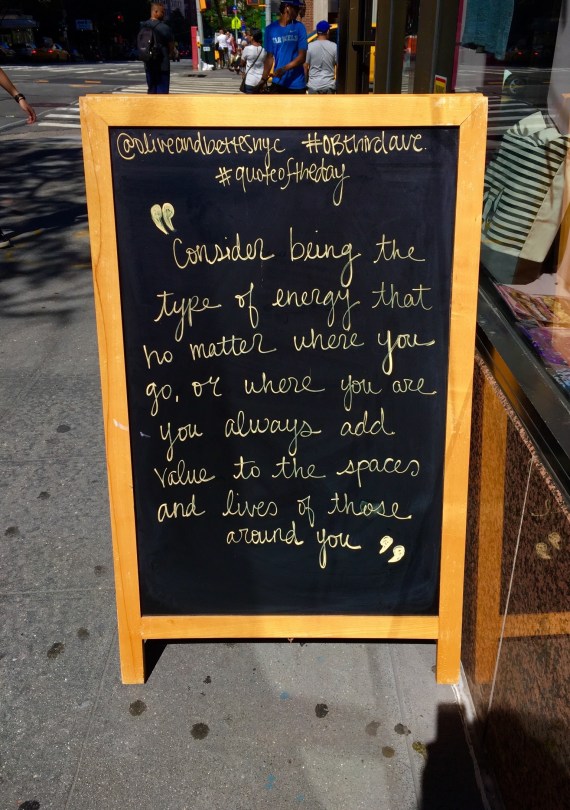 @oliveandbettesnyc #OBthirdave.
#quoteoftheday
"Consider being the
type of energy that
no matter where you
go, or where you are
you always add
value to the spaces
and lives of those
around you"